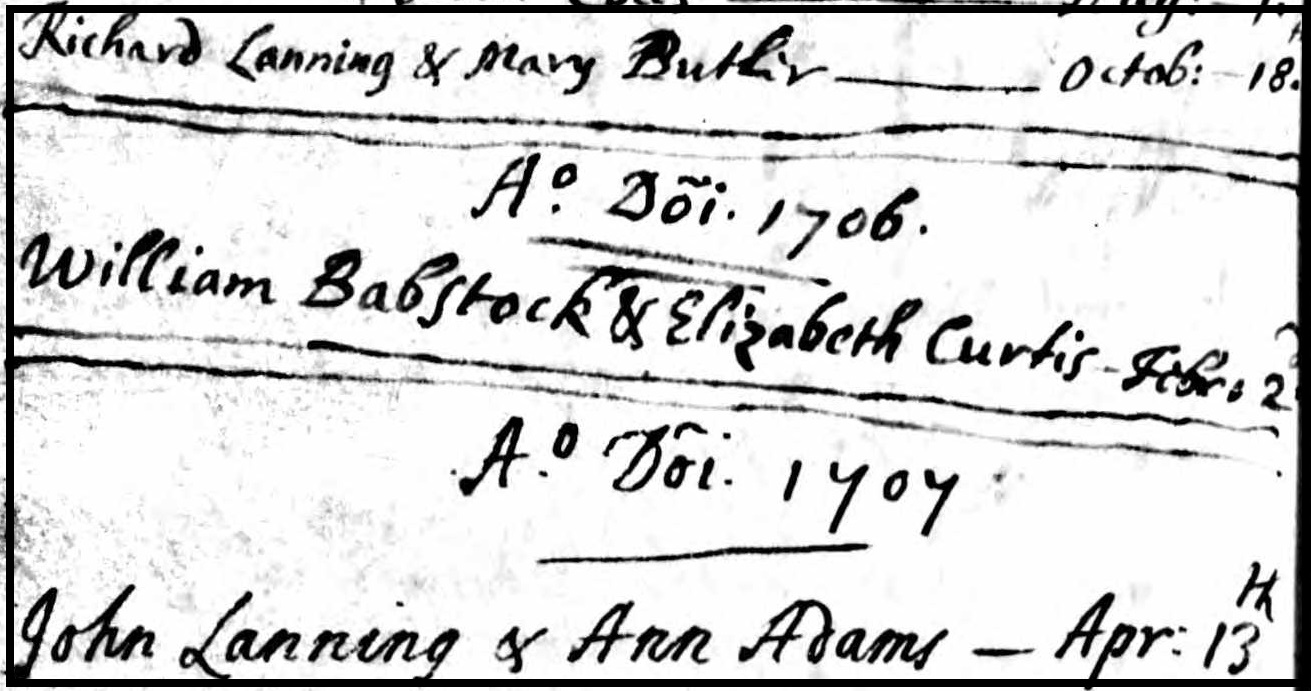 Richard Lanning & Mary Butler — Octob: 18.
Aº Dõi. 1706.
William Babstock & Elizabeth Curtis - Febr: 2
A.º Dõi. 1707
John Lanning & Ann Adams — Apr: 13th